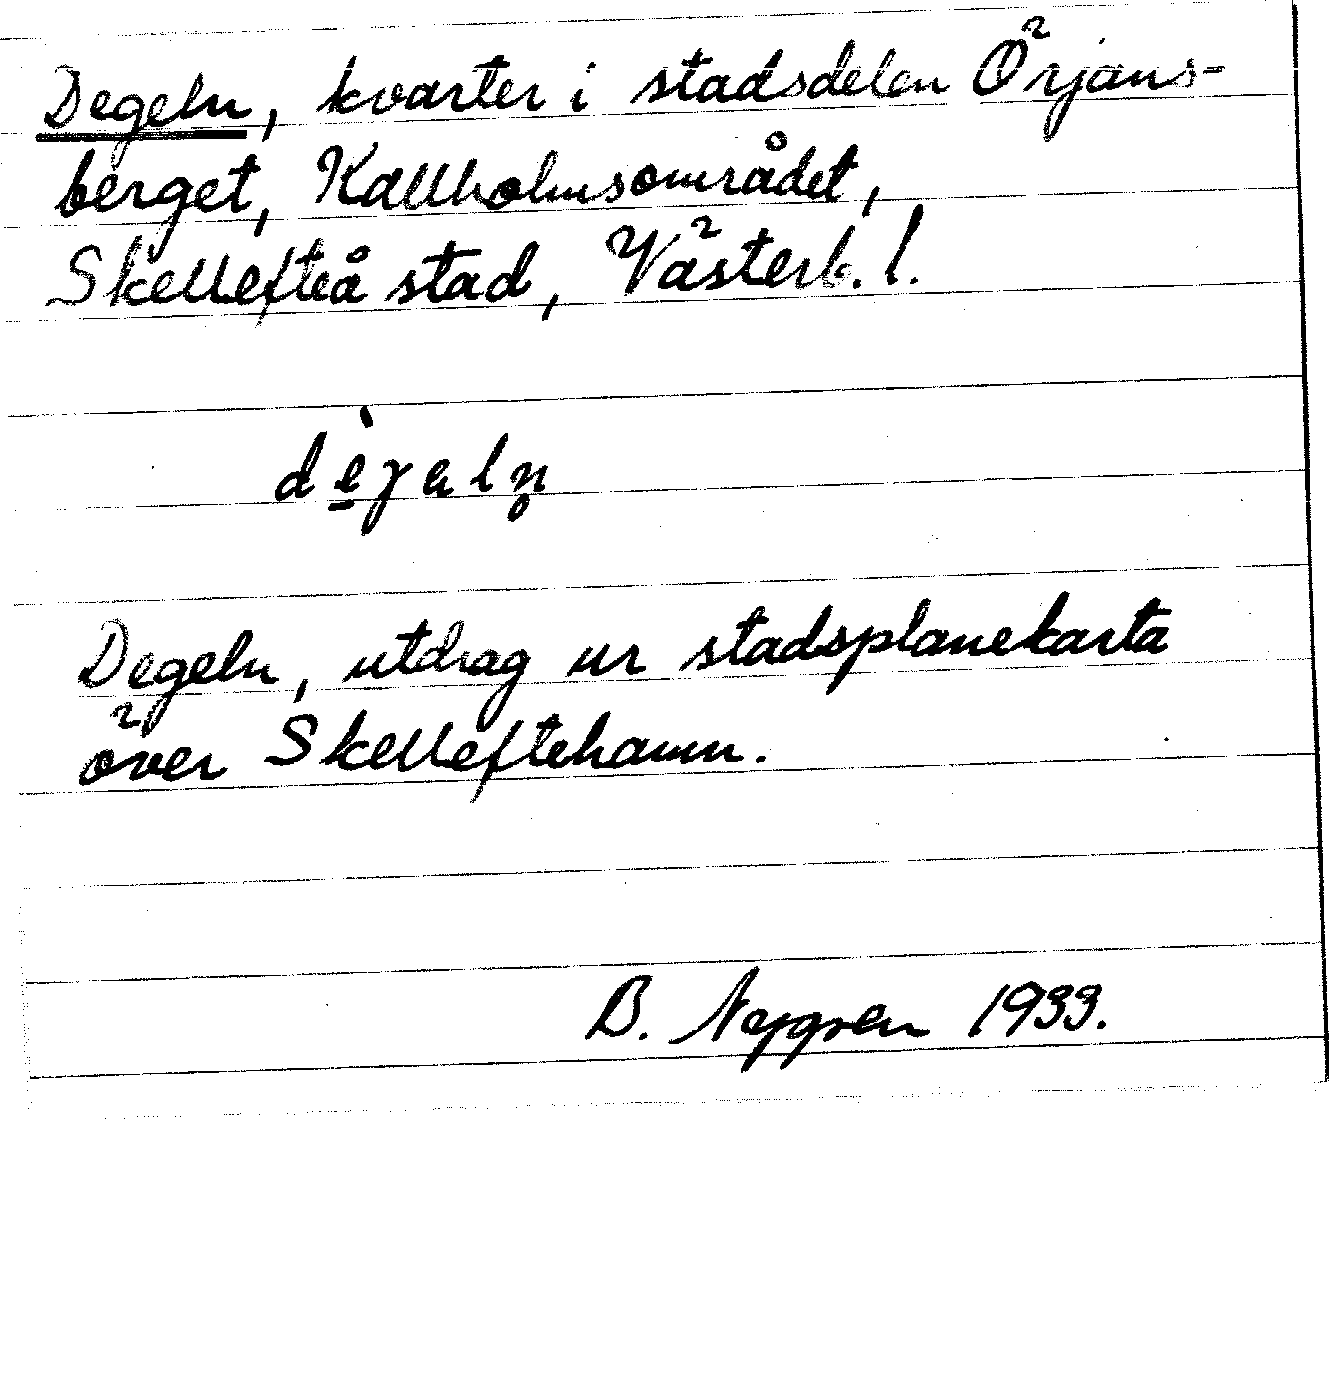 Degeln, kvarter i stadsdelen Örjans-
berget, Kallholmsområdet,
Skellefteå stad, Västerb. l.
Degeln, utdrag ur stadsplanekarta
över Skelleftehamn.
B. 1933.